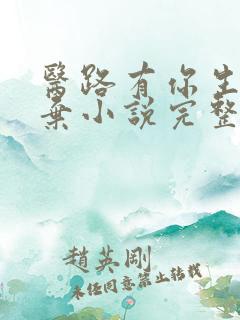 醫路有你生
棄小說完整
趙英剛
未經同意禁止轉載